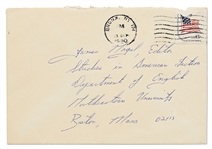 BRONX, NY
PM
James Nagel Editor
Studies in American Fiction
Department of English
Northeastern University
Boston, Mass 02115